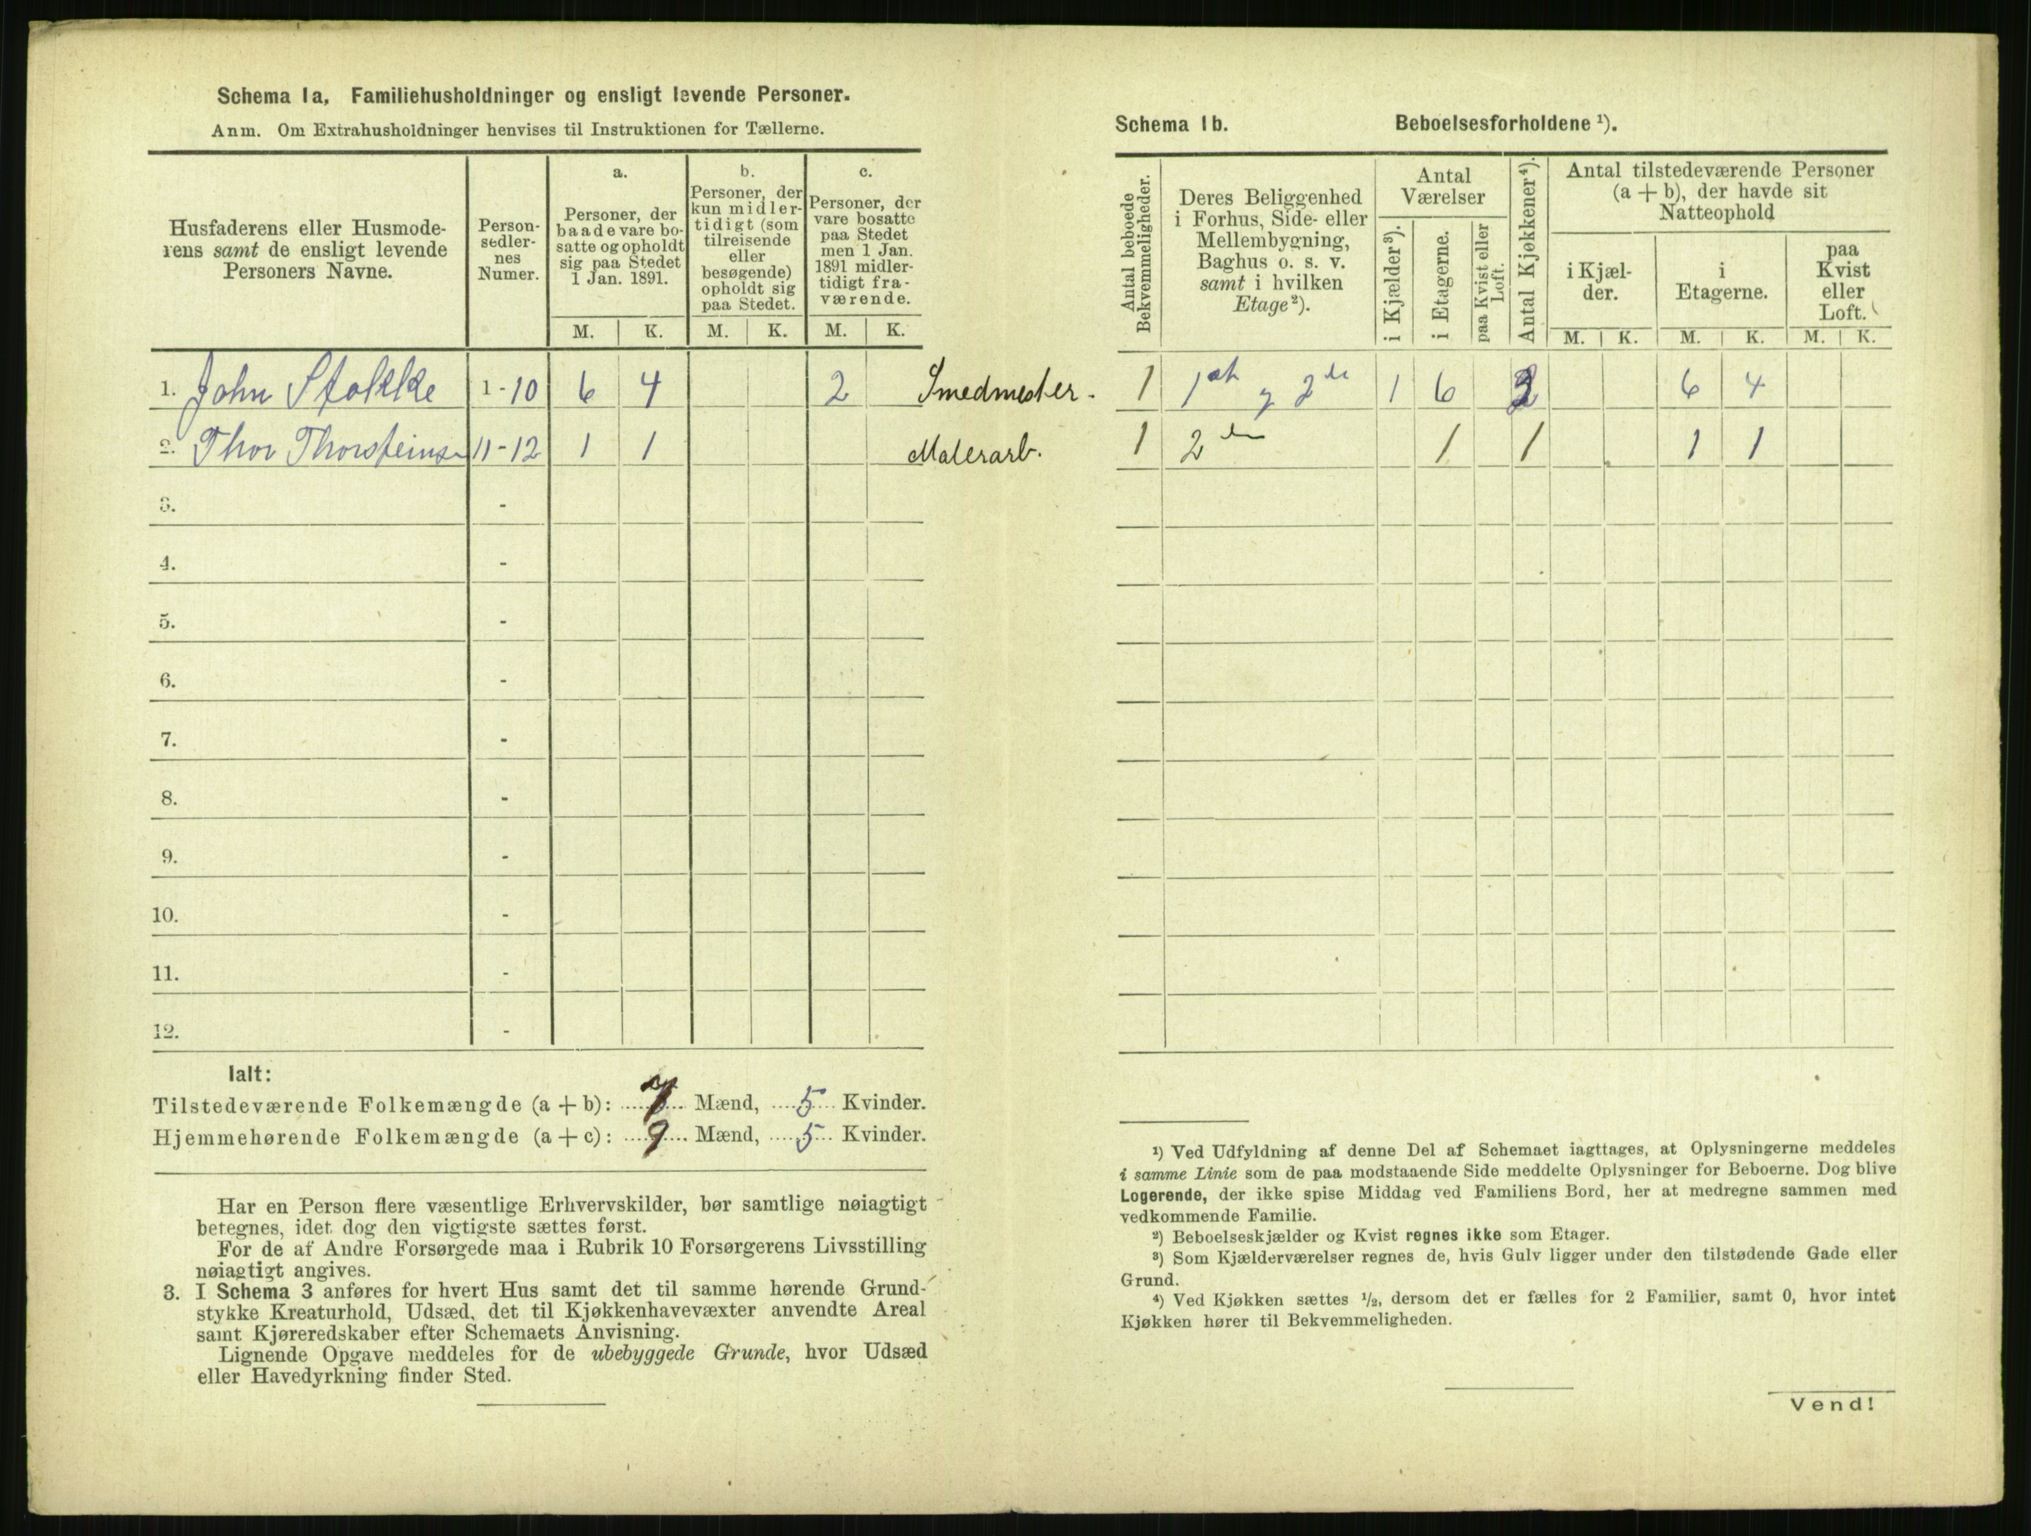 Schema 1a, Familiehusholdninger og ensligt levende Personer.
Anm. Om Extrahusholdninger henvises til Instruktionen for Tællerne.
Husfaderens eller Husmode-
rens samt de ensligt levende
Personers Navne.
Person-
sedler-
nes
Numer.
a.
Personer, der
baade vare bo-
satte og opholdt
sig paa Stedet
1 Jan. 1891.
b.
Personer, der
kun midler-
tidigt (som
tilreisende
eller
besøgende)
opholdt sig
paa Stedet.
c.
Personer, der
vare bosatte
paa Stedet
men 1 Jan.
1891 midler-
tidigt fra-
værende.
M. K. M. K. M. K.
1. John Stokke 1-10 6 4 2 Smedmester.
2. Thor Thorsteins 11-12 1 1 Malerarb.
3. -
4. -
5. -
6. -
7. -
8. -
9. -
10. -
11. -
12. -
Ialt:
Tilstedeværende Folkemængde (a + b): 7 Mænd, 5 Kvinder.
Hjemmehørende Folkemængde (a + c): 9 Mænd, 5 Kvinder.
Har en Person flere væsentlige Erhvervskilder, bør samtlige nøiagtigt
betegnes, idet dog den vigtigste sættes først.
For de af Andre Forsørgede maa i Rubrik 10 Forsørgerens Livsstilling
nøiagtigt angives.
3. I Schema 3 anføres for hvert Hus samt det til samme hørende Grund-
stykke Kreaturhold, Udsæd, det til Kjøkkenhavevæxter anvendte Areal
samt Kjøreredskaber efter Schemaets Anvisning.
Lignende Opgave meddeles for de ubebyggede Grunde, hvor Udsæd
eller Havedyrkning finder Sted.
Schema 1b. Beboelsesforholdene ¹).
Antal beboede
Bekvemmeligheder.
Deres Beliggenhed
i Forhus, Side- eller
Mellembygning,
Baghus o. s. v.
samt i hvilken
Etage ²).
Antal
Værelser
i Kjælder ³).
i Etagerne.
paa Kvist eller
Loft.
Antal Kjøkkener ⁴).
Antal tilstedeværende Personer
(a + b), der havde sit
Natteophold
i Kjæl-
der.
i
Etagerne.
paa
Kvist
eller
Loft.
M. K. M. K. M. K.
1 1 2 1 6 6 4
1 2 1 1 1 1
¹) Ved Udfyldning af denne Del af Schemaet iagttages, at Oplysningerne meddeles
i samme Linie som de paa modstaaende Side meddelte Oplysninger for Beboerne. Dog blive
Logerende, der ikke spise Middag ved Familiens Bord, her at medregne sammen med
vedkommende Familie.
²) Beboelseskjælder og Kvist regnes ikke som Etager.
³) Som Kjælderværelser regnes de, hvis Gulv ligger under den tilstødende Gade eller
Grund.
⁴) Ved Kjøkken sættes ½, dersom det er fælles for 2 Familier, samt 0, hvor intet
Kjøkken hører til Bekvemmeligheden.
Vend!